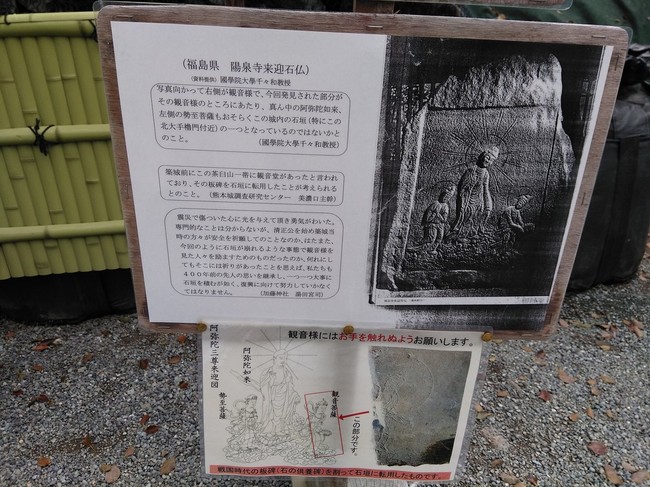 (福島県 陽泉寺来迎石仏)
(資料提供) 國學院大學千々和教授
写真向かって右側が観音様で、今回発見された部分が
その観音様のところにあたり、真ん中の阿弥陀如来、
左側の勢至菩薩もおそらくこの城内の石垣(特にこの
北大手櫓門付近)の一つとなっているのではないかと
のこと。 (國學院大學千々和教授)
築城前にこの茶臼山一帯に観音堂があったと言われ
ており、その板碑を石垣に転用したことが考えられる
とのこと。(熊本城調査研究センター 美濃口主幹)
震災で傷ついた心に光を与えて頂き勇気がわいた。
専門的なことは分からないが、清正公を始め築城当
時の方々が安全を祈願してのことなのか、はたまた、
今回のように石垣が崩れるような事態で観音様を
見た人々を励ますためのものだったのか、何れにし
てもそこには祈りがあったことを思えば、私たちも
400年前の先人の思いを継承し、一つ一つ大事に
石垣を積むが如く、復興に向けて努力していかなく
てはなりません。 (加藤神社 湯田宮司)
観音様にはお手を触れぬようお願いします。
阿弥陀三尊来迎図
阿弥陀如来
勢至菩薩
観音菩薩
この部分です。
戦国時代の板碑(石の供養碑)を割って石垣に転用したものです。